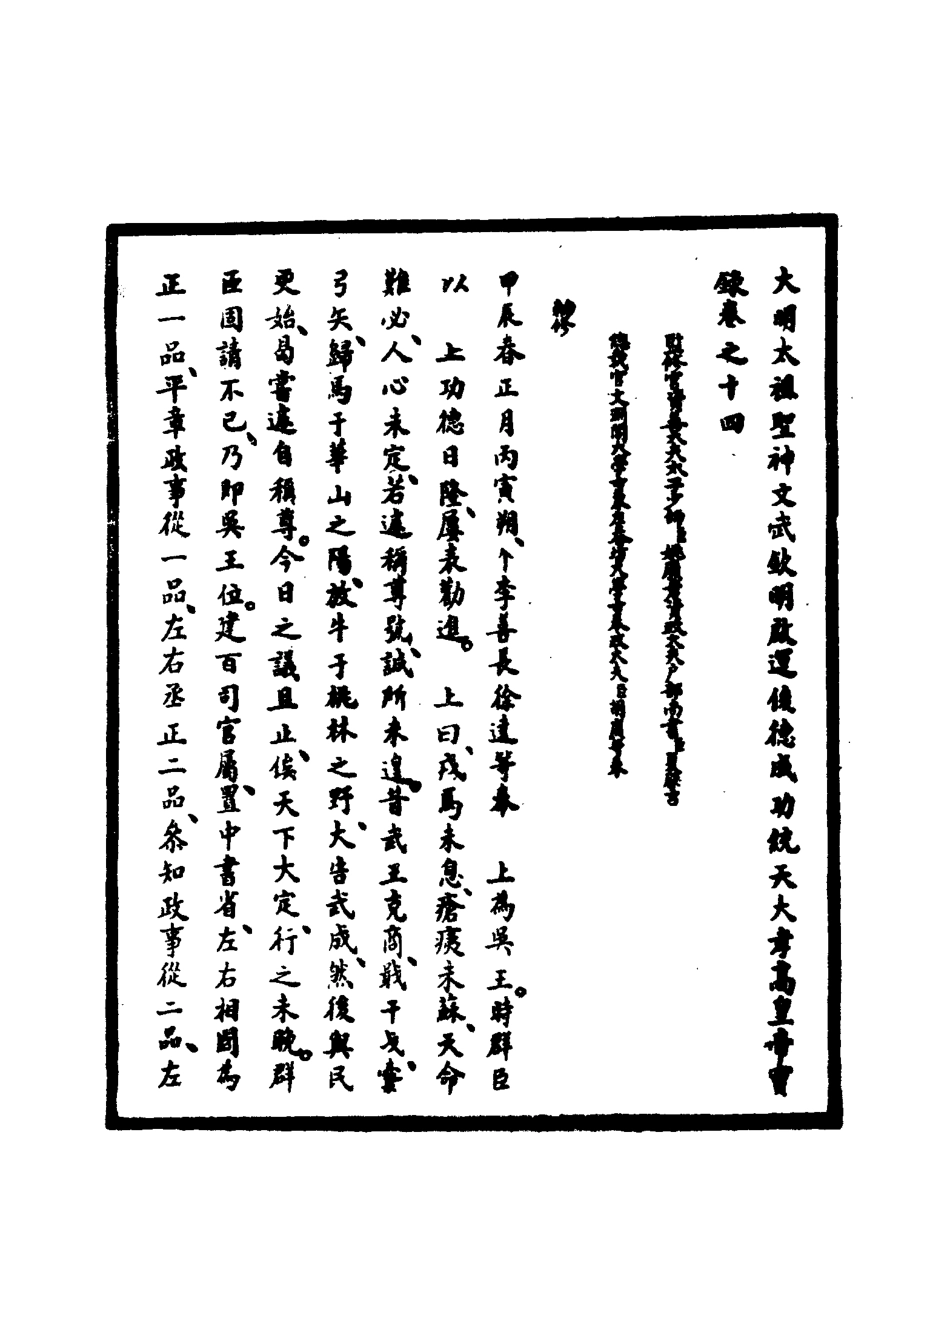 大明太祖聖神文武欽明啟運俊德成功統天大孝高皇帝實
錄卷之十四
勑修
甲辰春正月丙寅朔、个李善長徐達等奉　上為吳王。時群臣
以　上功德日隆、屢表勸進。　上曰、戎馬未息、瘡痍未蘇、天命
難必、人心未定、若遽稱尊號、誠所未遑。昔武王克商、戢干戈、櫜
弓矢、歸馬于華山之陽、放牛于桃林之野、大告武成、然後與民
更始、曷嘗遽自稱尊。今日之議且止、俟天下大定、行之未晚。群
臣固請不已、乃即吳王位。建百司官屬、置中書省、左右相國為
正一品、平章政事從一品、左右丞正二品、叅知政事從二品、左